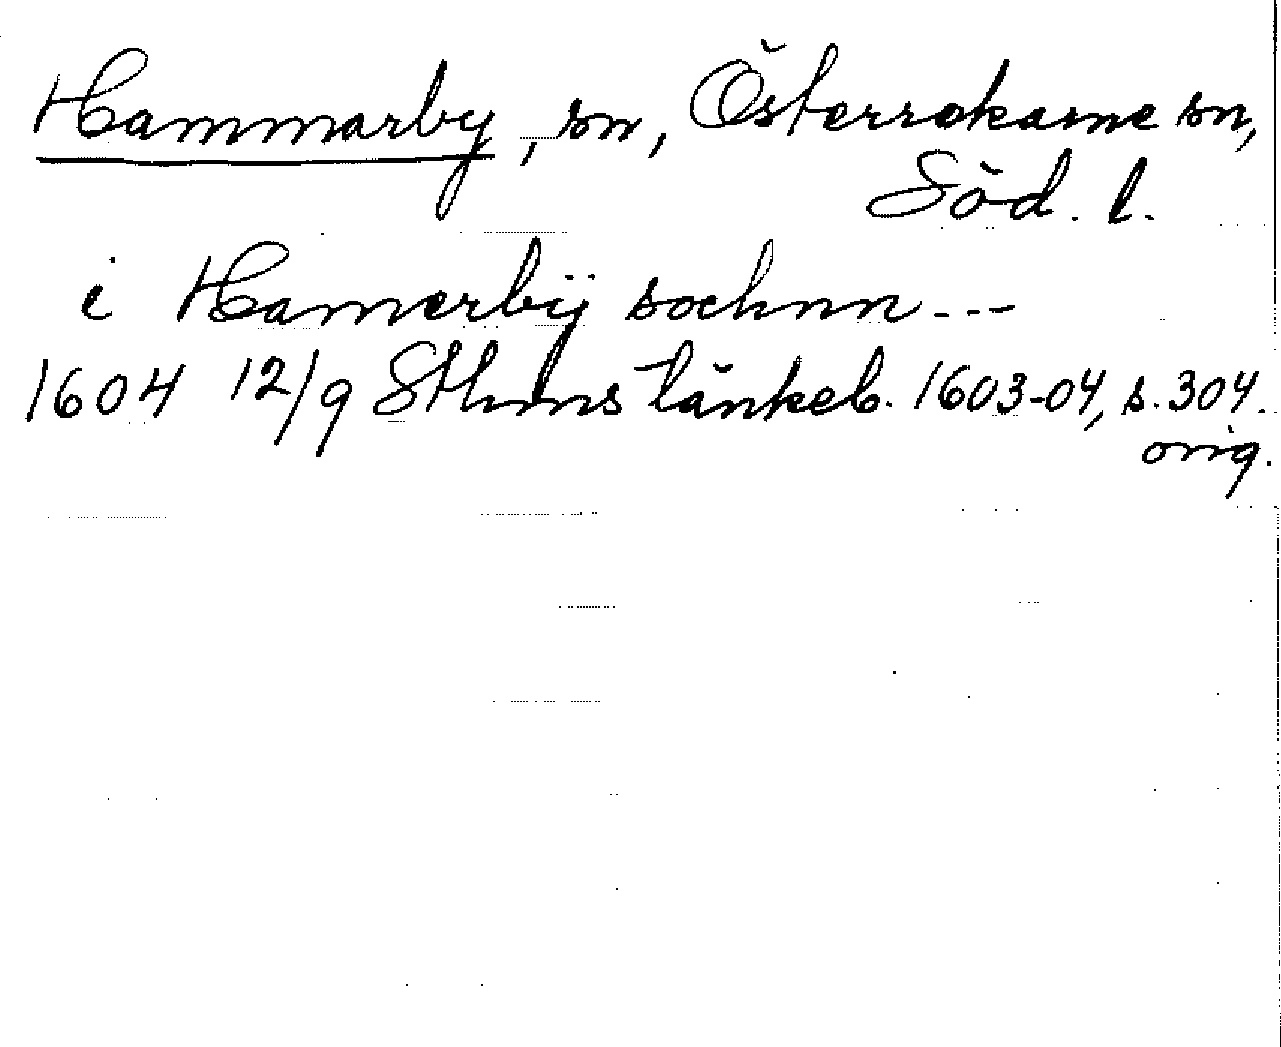 Hammarby, sn, Österrekarne sn,
Söd. l.
i Hamerbÿ sochnn...
1604 12/9 Sthms tänkeb. 1603-04, s. 304.
orig.